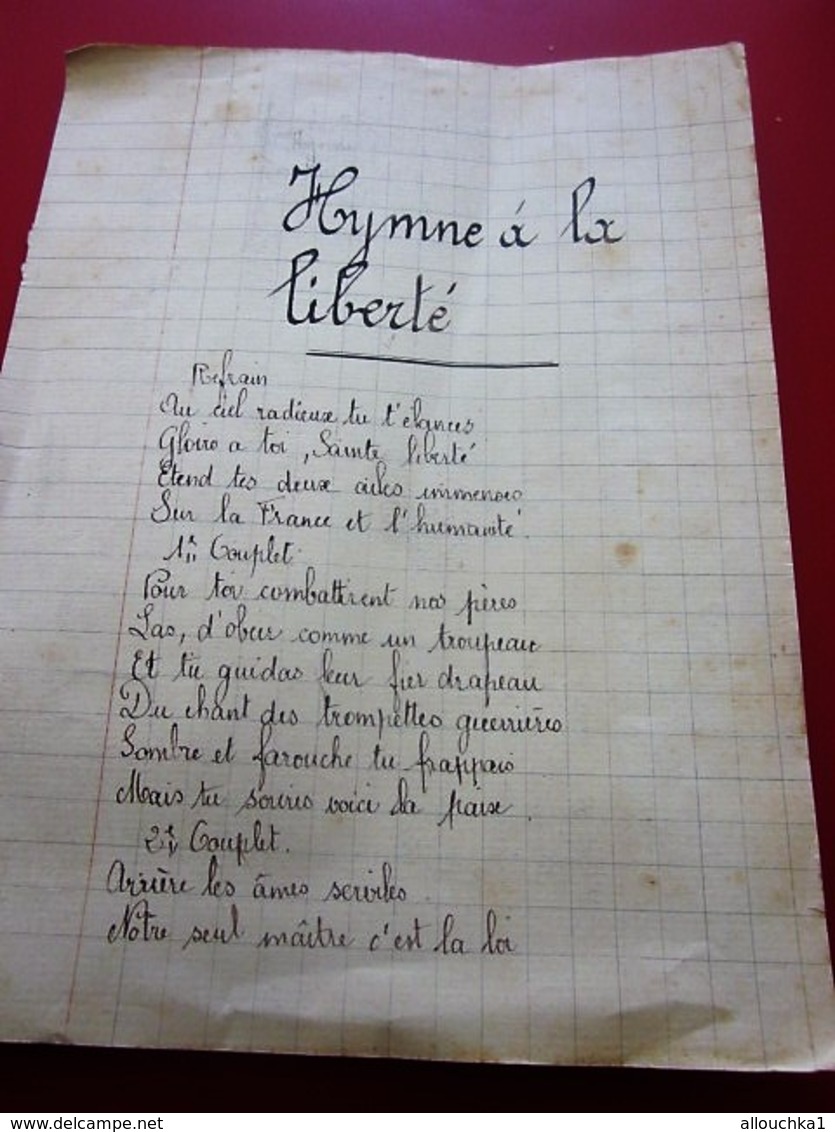 Hymne à la
liberté
Refrain
Au ciel radieux tu t'élances
Gloire a toi, Sainte liberté
Etend tes deux ailes immenses
Sur la France et l'humanité.
1er Couplet.
Pour toi combattirent nos pères
Las, d'obeir comme un troupeau
Et tu guidas leur fier drapeau
Du chant des trompettes guerrières
Sombre et farouche tu frappais
Mais tu souris voici la paix.
2e Couplet.
Arrière les âmes serviles.
Notre seul maître c'est la loi
www.delcampe.net
allouchka1